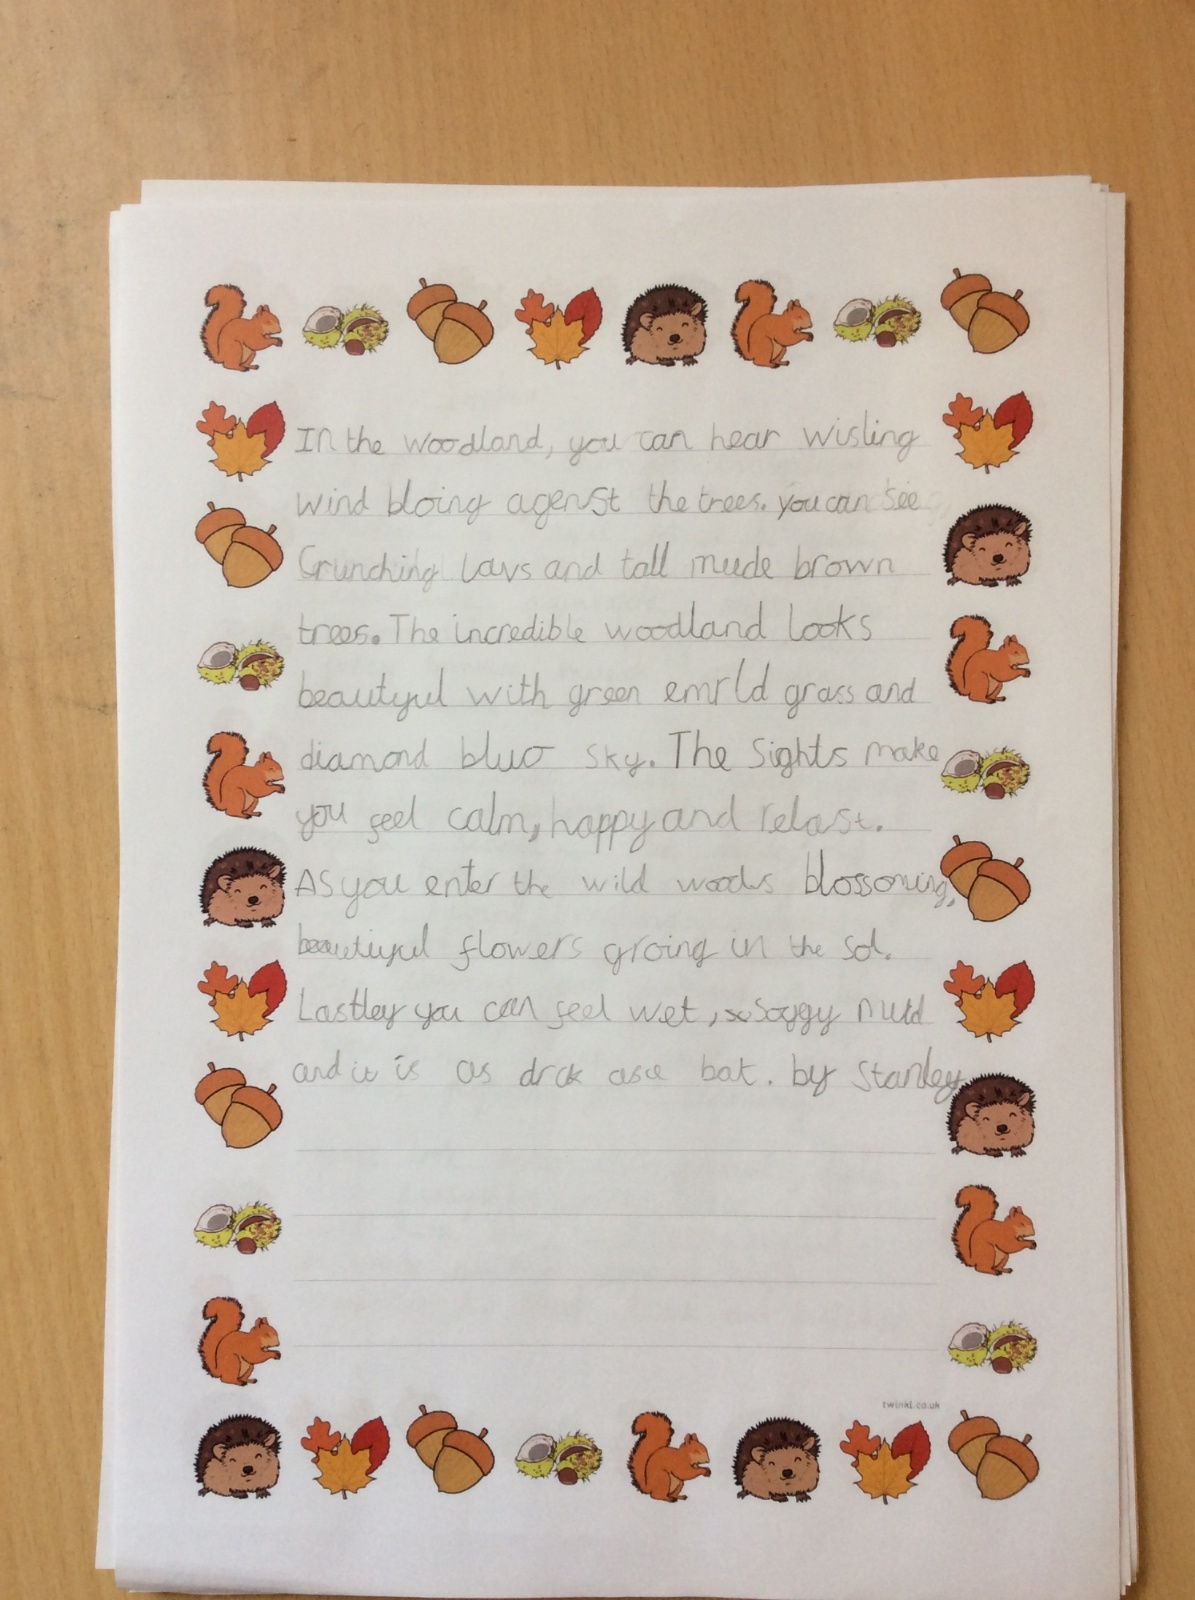 In the woodland, you can hear wisling
wind bloing agenst the trees. you can see
Crunching lavs and tall mude brown
trees. The incredible woodland looks
beautyful with green emrld grass and
diamond bluo sky. The Sights make
you feel calm, happy and relast.
As you enter the wild woods blossoming,
beautiyful flowers groing in the sol.
Lastley you can feel wet, soggy mud
and it is as drak as a bat. by Stanley
twinkl.co.uk